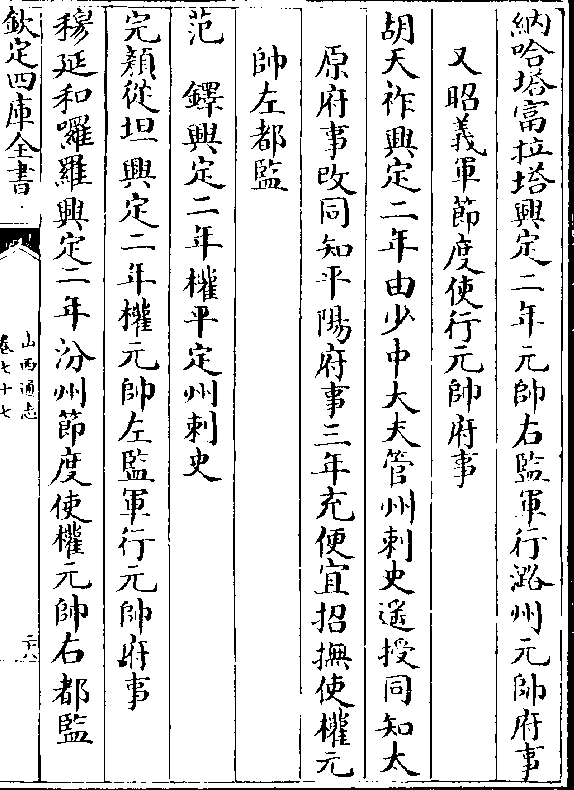 納哈塔富拉塔興定二年元帥右監軍行潞州元帥府事
又昭義軍節度使行元帥府事
胡天祚興定二年由少中大夫管州刺史遥授同知太
原府事改同知平陽府事三年充便宜招撫使權元
帥左都監
范　鐸興定二年權平定州刺史
完顏從坦興定二年權元帥左監軍行元帥府事
穆延和囉羅興定二年汾州節度使權元帥右都監
欽定四庫全書
山西通志
卷七十七
二十八